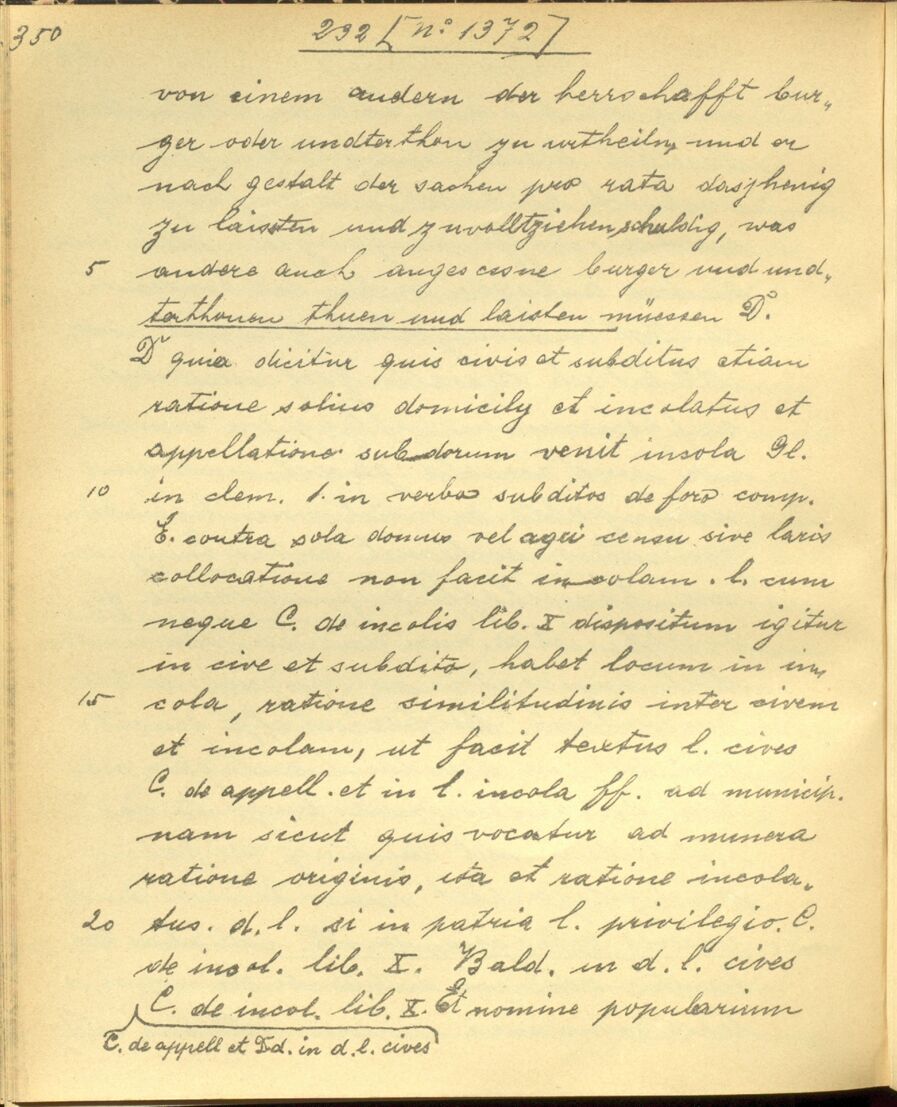 350
292 [nº 1372]
von einem andern der herrschafft bur„
ger oder undterthon zu urtheiln, und er
nach gestalt der sachen pro rata dasjhenig
zu laissten und zuvolltziehen schuldig, was
5 andere auch angesessne burger und und„
terthonen thuen und laisten müessen D.
D quia dicitur quis civis et subditus etiam
ratione solius domicily et incolatus et
appellatione subdorum venit insola Gl.
10 in clem. 1. in verbo subditos de foro comp.
E. contra sola domus vel agri censu sive laris
collocatione non facit incolam. l. cum
neque C. de incolis lib. X dispositum igitur
in cive et subdito, habet locum in in„
15 cola, ratione similitudinis inter civem
et incolam, ut facit textus l. cives
C. de appell. et in l. incola ff. ad municip.
nam sicut quis vocatur ad munera
ratione originis, ita et ratione incola„
20 tus. d. l. si in patria l. privilegio. C.
de incol. lib. X. Bald. in d. l. cives
C. de incol. lib. X. Et nomine popularium
C. de appell et Dd. in d. l. cives